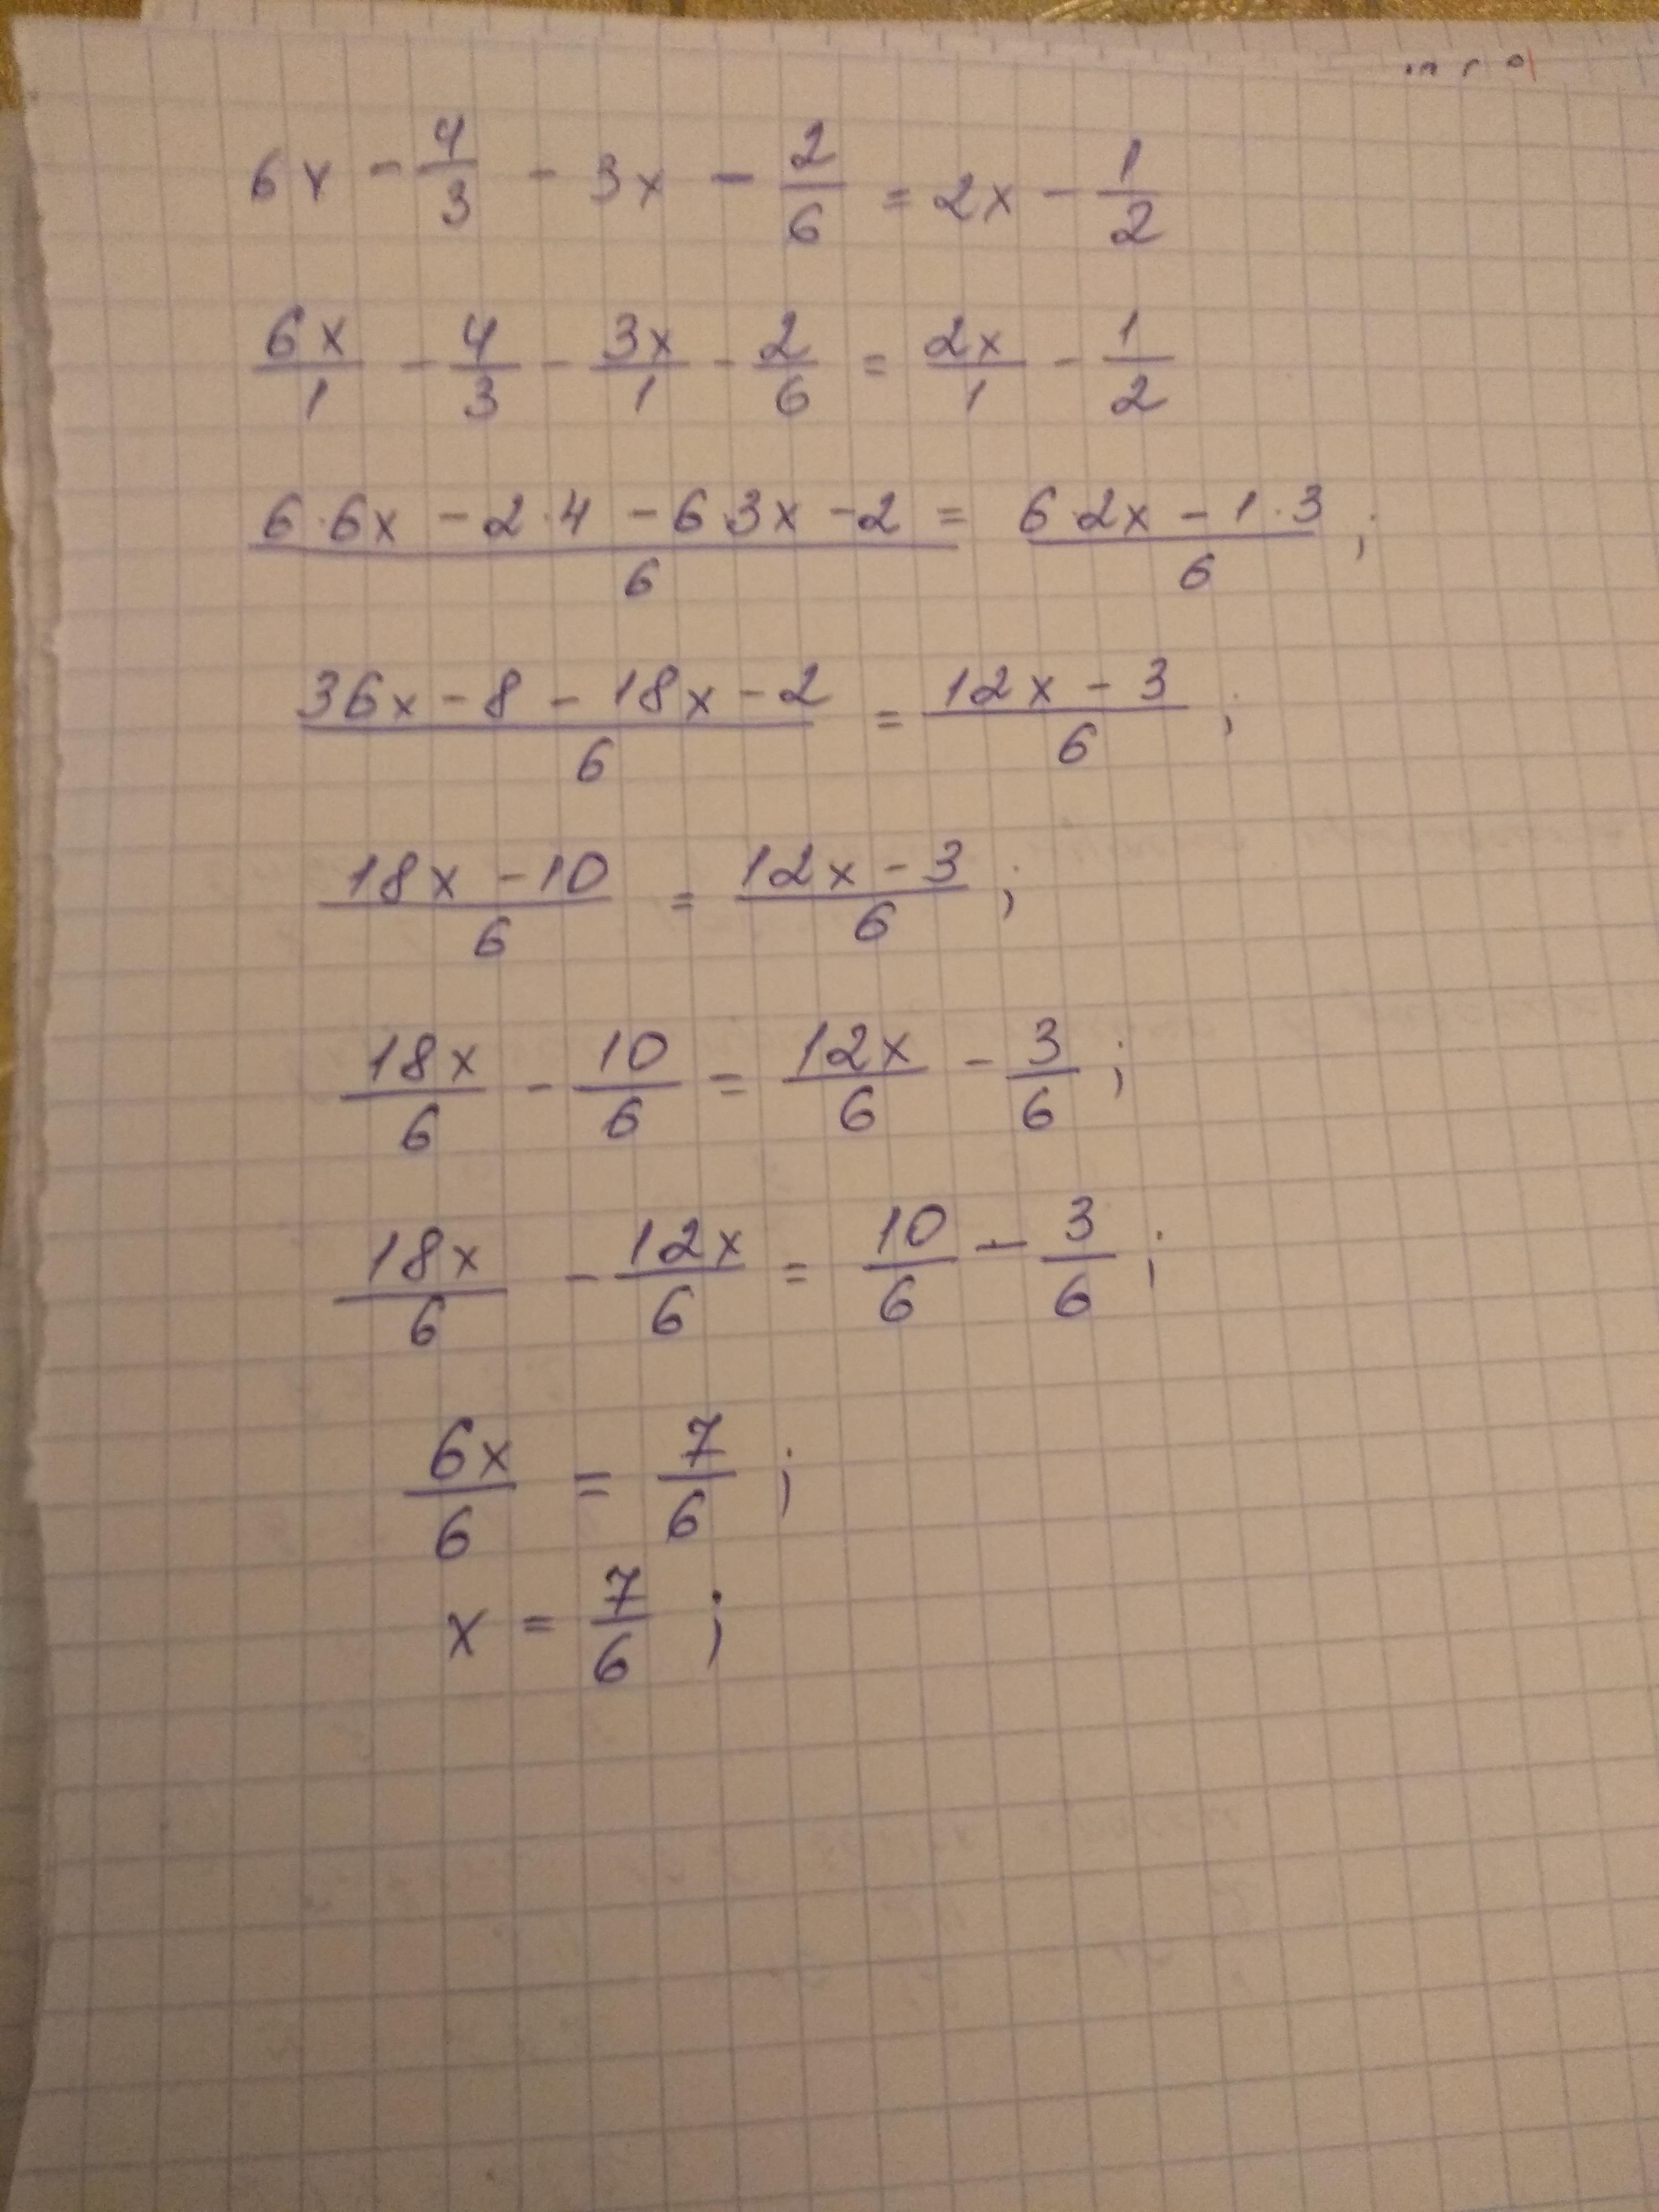 6x - 4/3 - 3x - 2/6 = 2x - 1/2
6x/1 - 4/3 - 3x/1 - 2/6 = 2x/1 - 1/2
(6·6x - 2·4 - 6·3x - 2)/6 = (6·2x - 1·3)/6 ;
(36x - 8 - 18x - 2)/6 = (12x - 3)/6 ;
(18x - 10)/6 = (12x - 3)/6 ;
18x/6 - 10/6 = 12x/6 - 3/6 ;
18x/6 - 12x/6 = 10/6 - 3/6 ;
6x/6 = 7/6 ;
x = 7/6 ;